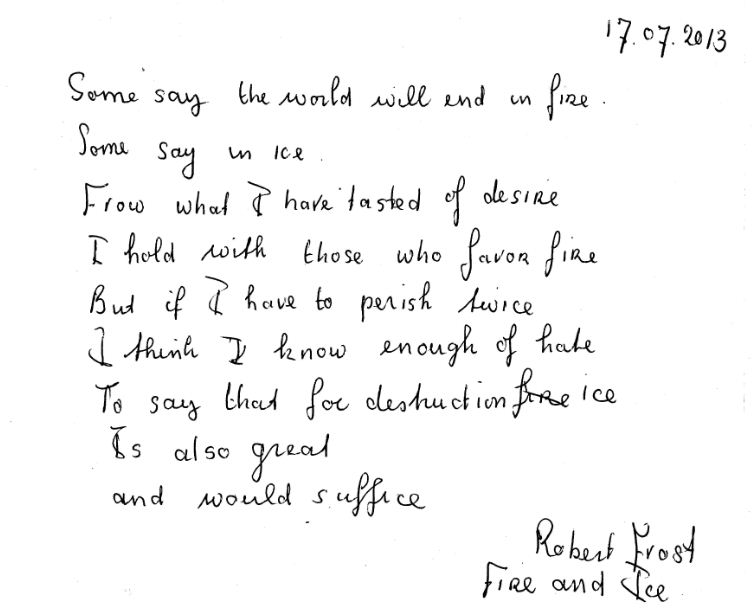 17.07.2013
Some say the world will end in fire.
Some say in ice.
From what I have tasted of desire
I hold with those who favor fire
But if I have to perish twice
I think I know enough of hate
To say that for destruction fire ice
Is also great
and would suffice
Robert Frost
Fire and Ice